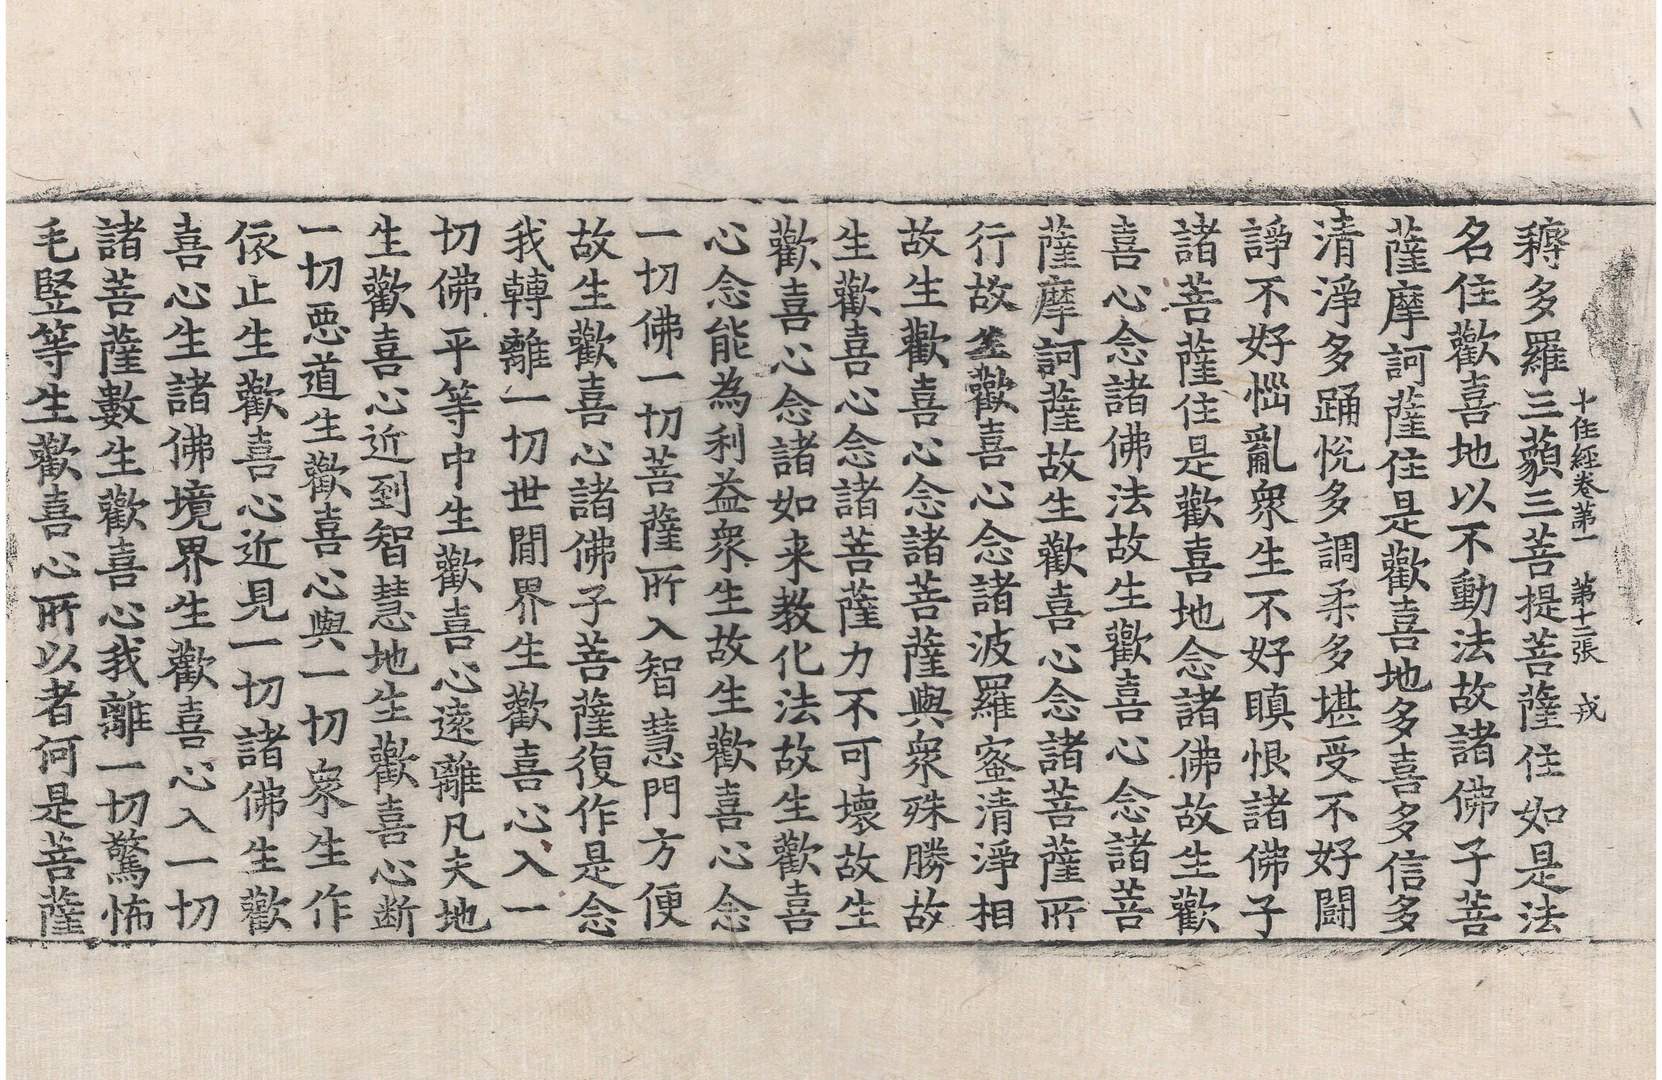 十住經卷第一　第十二張　戎
耨多羅三藐三菩提菩薩住如是法
名住歡喜地以不動法故諸佛子菩
薩摩訶薩住是歡喜地多喜多信多
清淨多踊悅多調柔多堪受不好鬪
諍不好惱亂衆生不好瞋恨諸佛子
諸菩薩住是歡喜地念諸佛故生歡
喜心念諸佛法故生歡喜心念諸菩
薩摩訶薩故生歡喜心念諸菩薩所
行故生歡喜心念諸波羅蜜清淨相
故生歡喜心念諸菩薩與衆殊勝故
生歡喜心念諸菩薩力不可壞故生
歡喜心念諸如来教化法故生歡喜
心念能為利益衆生故生歡喜心念
一切佛一切菩薩所入智慧門方便
故生歡喜心諸佛子菩薩復作是念
我轉離一切世閒界生歡喜心入一
切佛平等中生歡喜心遠離凡夫地
生歡喜心近到智慧地生歡喜心断
一切惡道生歡喜心與一切衆生作
依止生歡喜心近見一切諸佛生歡
喜心生諸佛境界生歡喜心入一切
諸菩薩數生歡喜心我離一切驚怖
毛竪等生歡喜心所以者何是菩薩